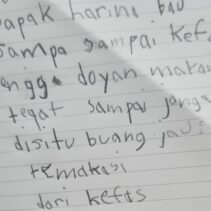 apak harini bau
sampa sampai kef
angga doyan maka
tegat sampai jang
disitu buang jau
temakasi
dari kefts